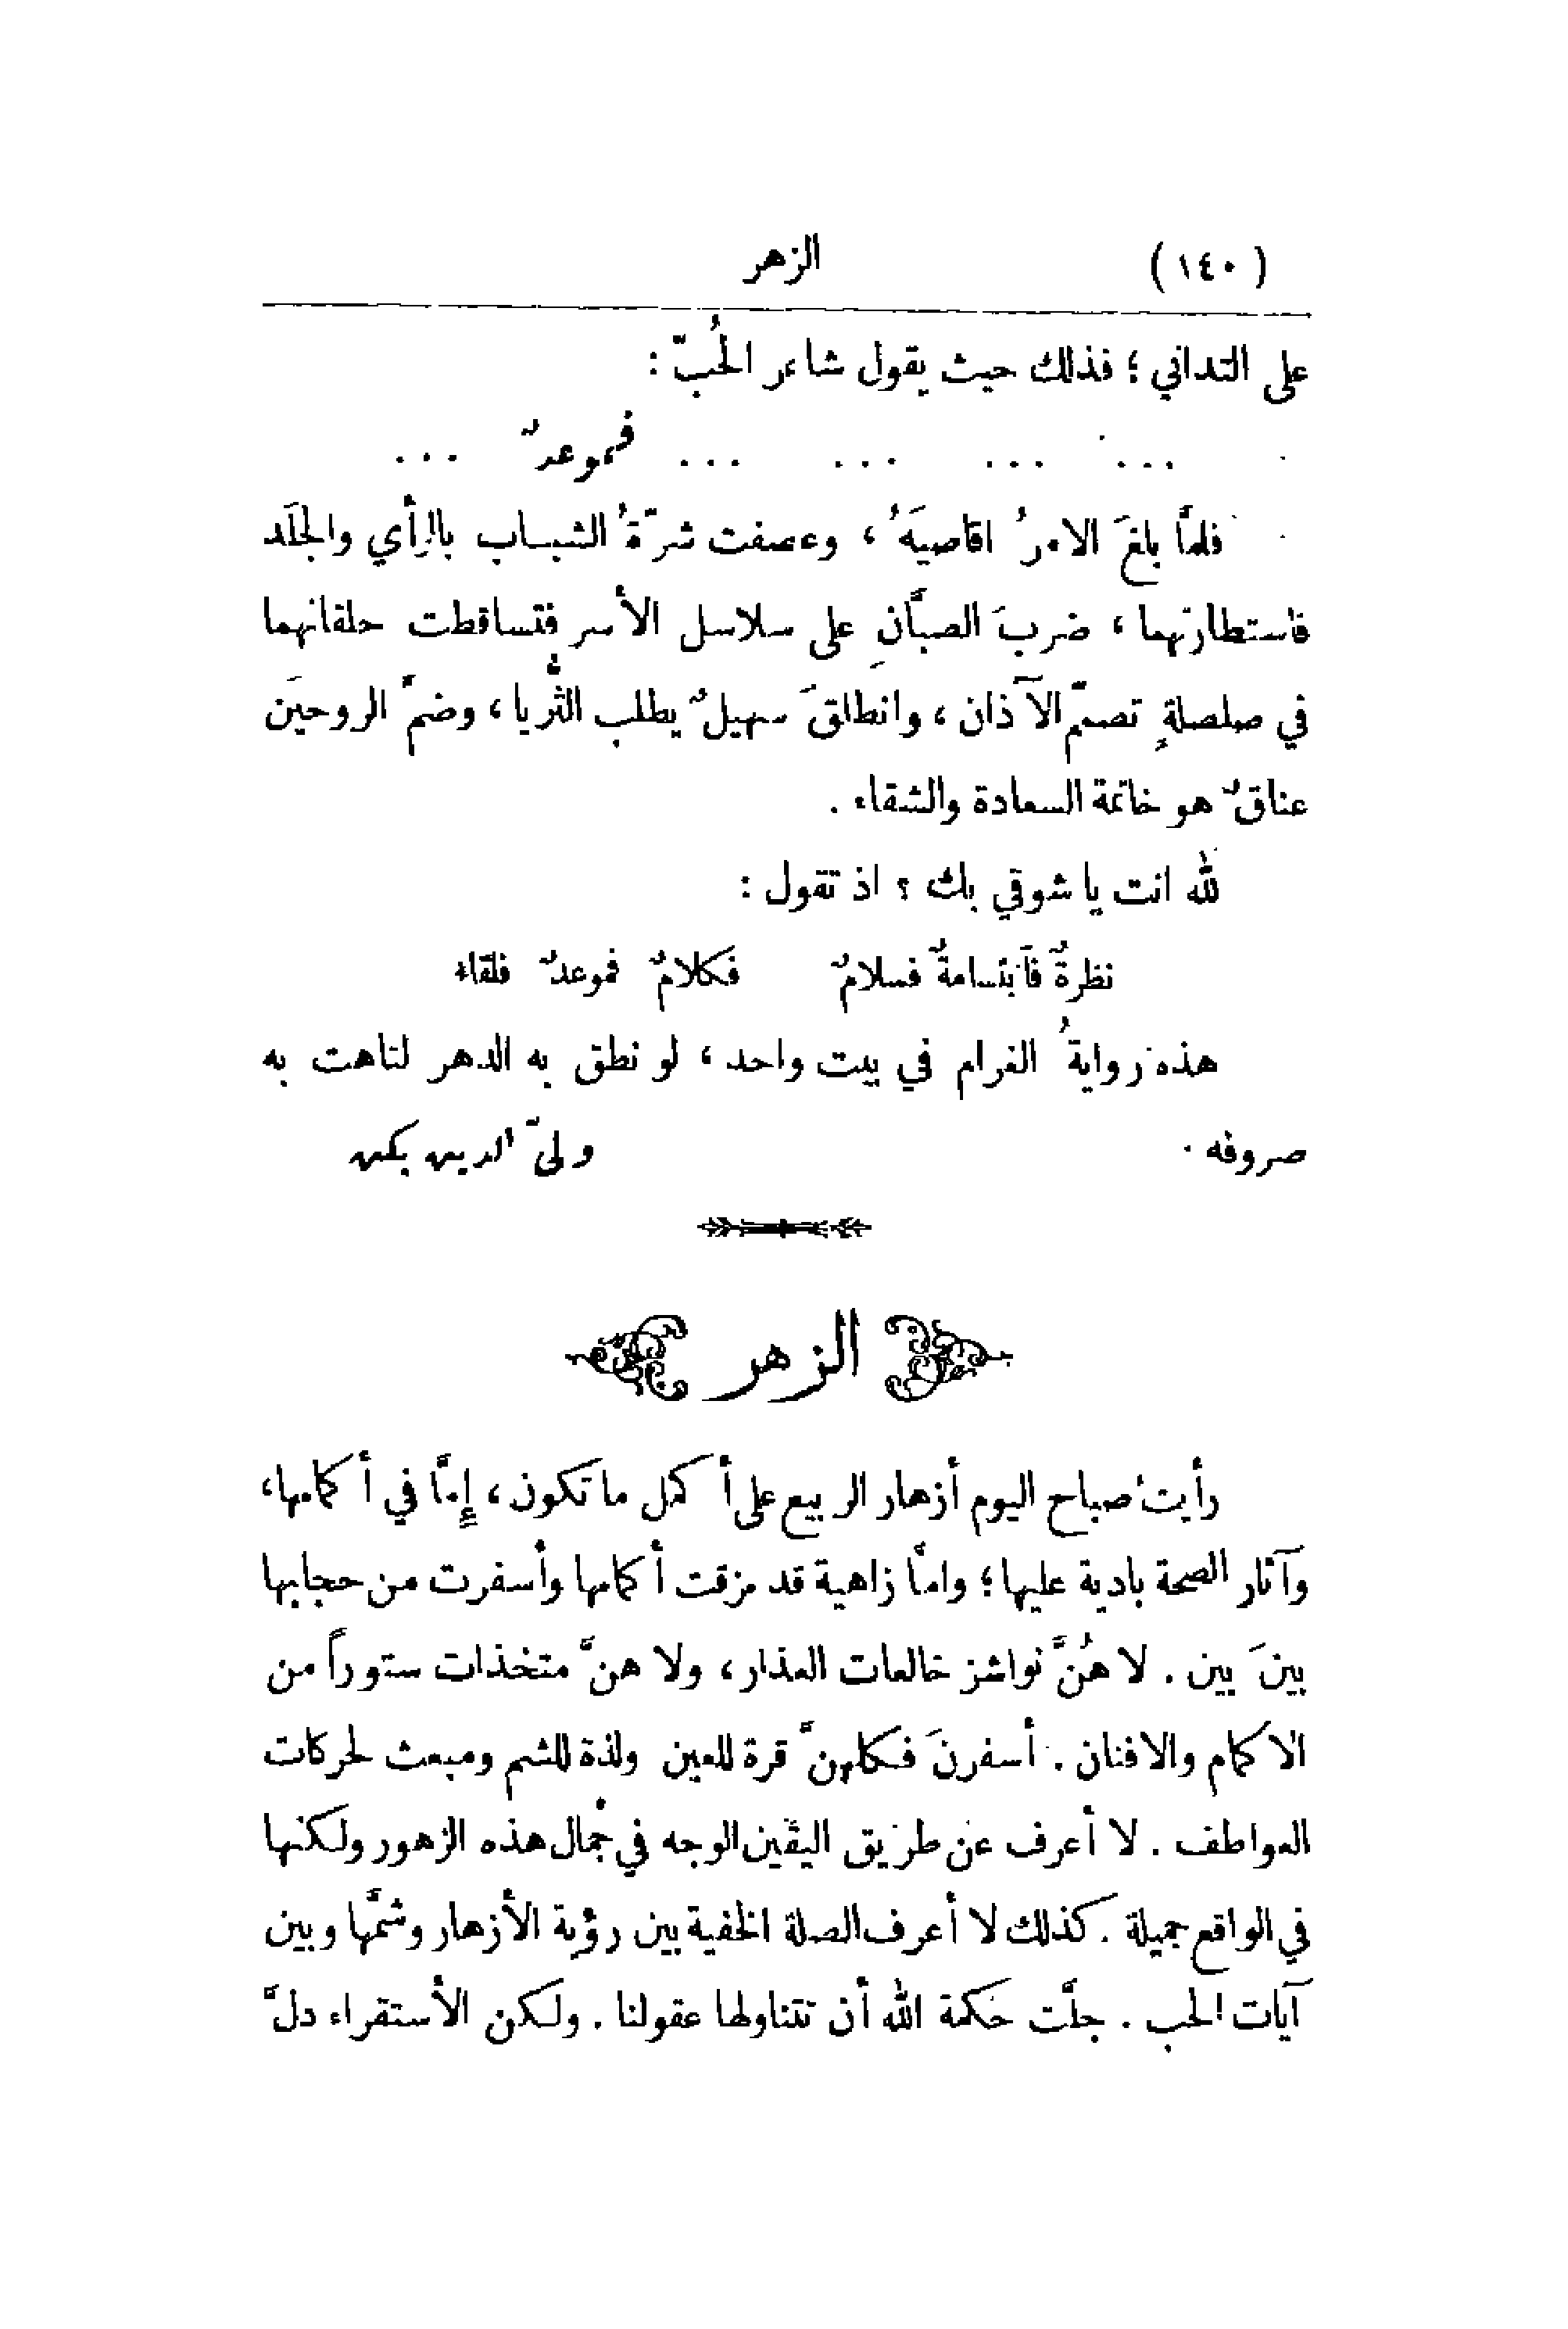 (١٤٠) الزهر
على التداني ؛ فذلك حيث يقول شاعر الحُبّ :
... ... ... ... فموعدٌ ...
فلمَّا بلغَ الامرُ اقاصيَهُ ، وعصفت شرّةُ الشباب بالرأي والجلَد
فاستطارتهما ، ضربَ الصبَّانِ على سلاسل الأسر فتساقطت حلقاتهما
في صلصلةٍ تصمّم الآذان ، وانطلقَ سهيلٌ يطلب الثُّريا ، وضمَّ الروحين
عناقٌ هو خاتمة السعادة والشقاء .
لله انت يا شوقي بك ؟ اذ تقول :
نظرةٌ فأبتسامةٌ فسلامٌ فكلامٌ فموعدٌ فلقاء
هذه روايةُ الغرام في بيت واحد ، لو نطق به الدهر لتاهت به
صروفه . وليّ الدين يكن
الزهر
رأيت صباح اليوم أزهار الربيع على أكمل ما تكون ، إمَّا في أكمامها ،
وآثار الصحة بادية عليها ؛ وامَّا زاهية قد مزقت أكمامها وأسفرت من حجابها
بينَ بين . لا هُنَّ نواشز خالعات العذار ، ولا هنَّ متخذات ستوراً من
الاكمام والافنان . أسفرنَ فكلهنَّ قرة للعين ولذة للشم ومبعث لحركات
العواطف . لا أعرف عن طريق اليقين الوجه في جمال هذه الزهور ولكنها
في الواقع جميلة . كذلك لا أعرف الصلة الخفية بين رؤية الأزهار وشمَّها وبين
آيات الحب . جلَّت حكمة الله أن تتناولها عقولنا . ولكن الأستقراء دلَّ